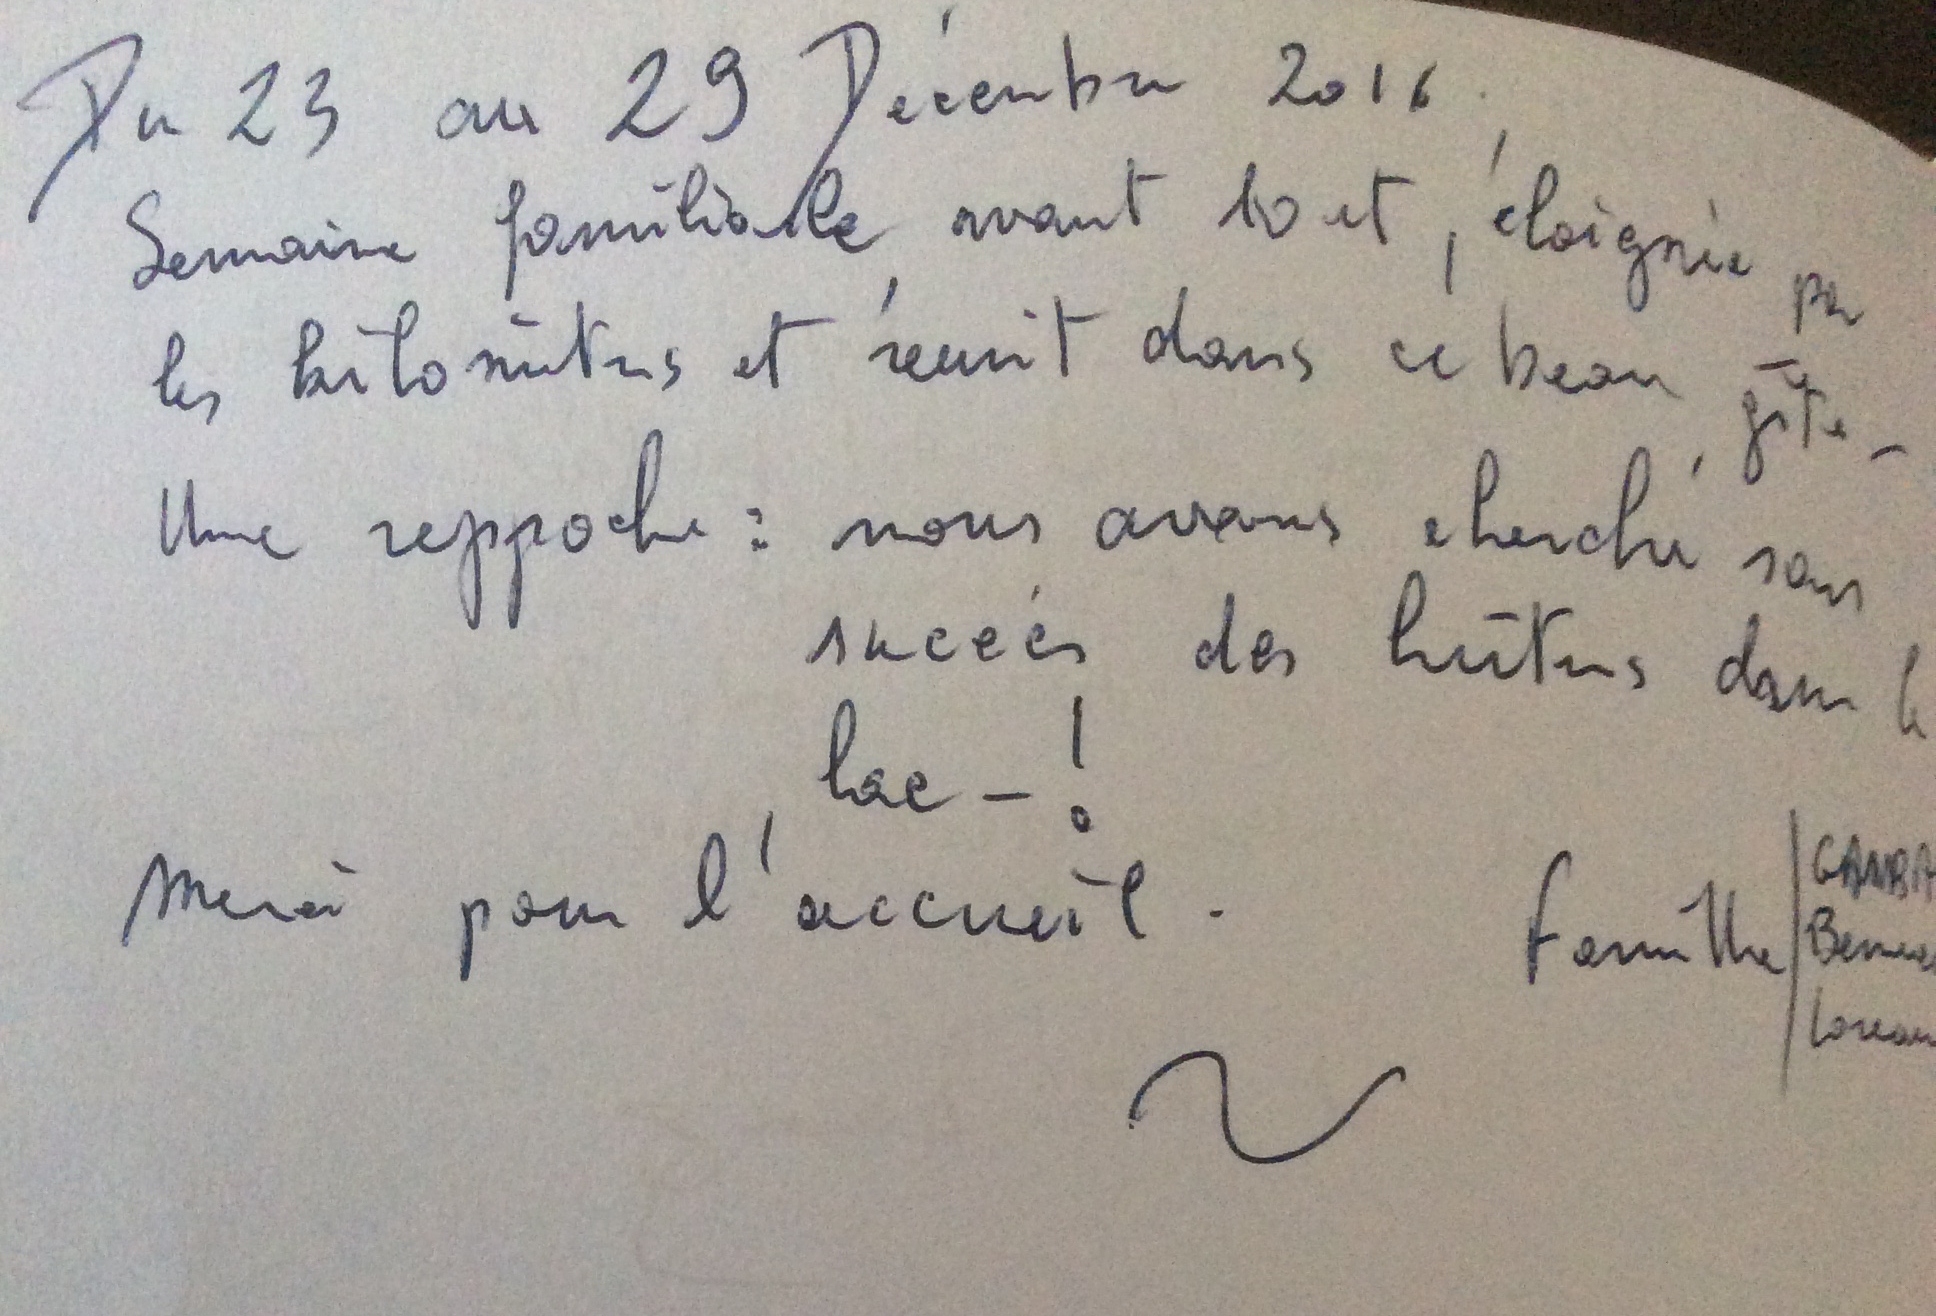 Du 23 au 29 Décembre 2016.
Semaine familiale avant tout, éloignée par
les kilomètres et réunit dans ce beau gîte -
Une repproche : nous avons cherché sans
succés des huîtres dans le
lac - !
Merci pour l'accueil.
Famille